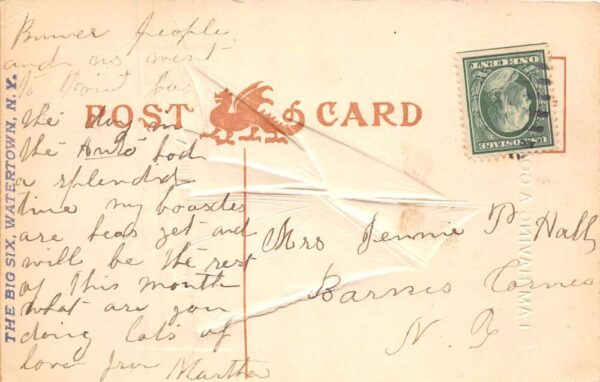 Bruver people
and us went
to Point
the day in
the Auto had
a splendid
time my boarder
are heas yet and
will be the rest
of this month
what are you
doing lots of
love from Martha
POST CARD
Mrs Jennie P Hall
Barnes Cornes
N. Y
THE BIG SIX, WATERTOWN, N.Y.
U.S. POSTAGE
ONE CENT